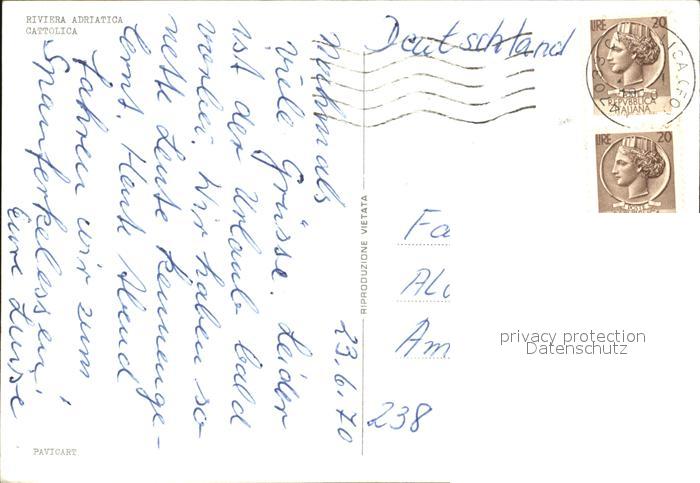 RIVIERA ADRIATICA
CATTOLICA
Deutschland
LIRE 20
REPVBBLICA
ITALIANA
LIRE 20
23.6.70
Mehmals
viele Grüsse. Leider
ist der Urlaub bald
vorbei. Wir haben so
nette Leute kennenge-
lernt. Heute Abend
fahren wir zum
Spanferkelessen!
Eure Luise
RIPRODUZIONE VIETATA
Fa
Am
238
privacy protection
Datenschutz
PAVICART